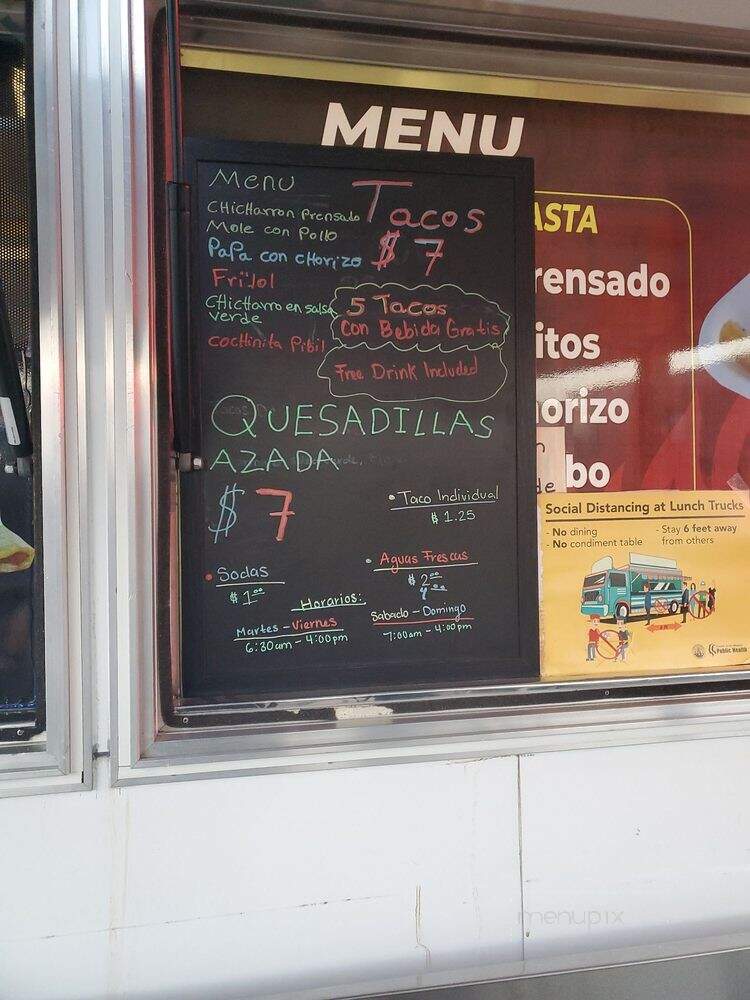 MENU
Menu
Tacos
$7
CHICHARRON PRENSADO
MOLE CON POLLO
PAPA CON CHORIZO
FRIJOL
CHICHARRO EN SALSA
VERDE
COCHINITA PIBIL
5 Tacos
CON Bebida Gratis
Free Drink Included
QUESADILLAS
AZADA
$7
• Taco Individual
$1.25
• Sodas
$1.00
• Aguas Frescas
$2.00
4.00
Horarios:
Martes - Viernes
6:30am - 4:00pm
Sabado - Domingo
7:00am - 4:00pm
ASTA
rensado
itos
horizo
bo
de
Social Distancing at Lunch Trucks
- No dining
- No condiment table
- Stay 6 feet away
from others
Public Health
menupix